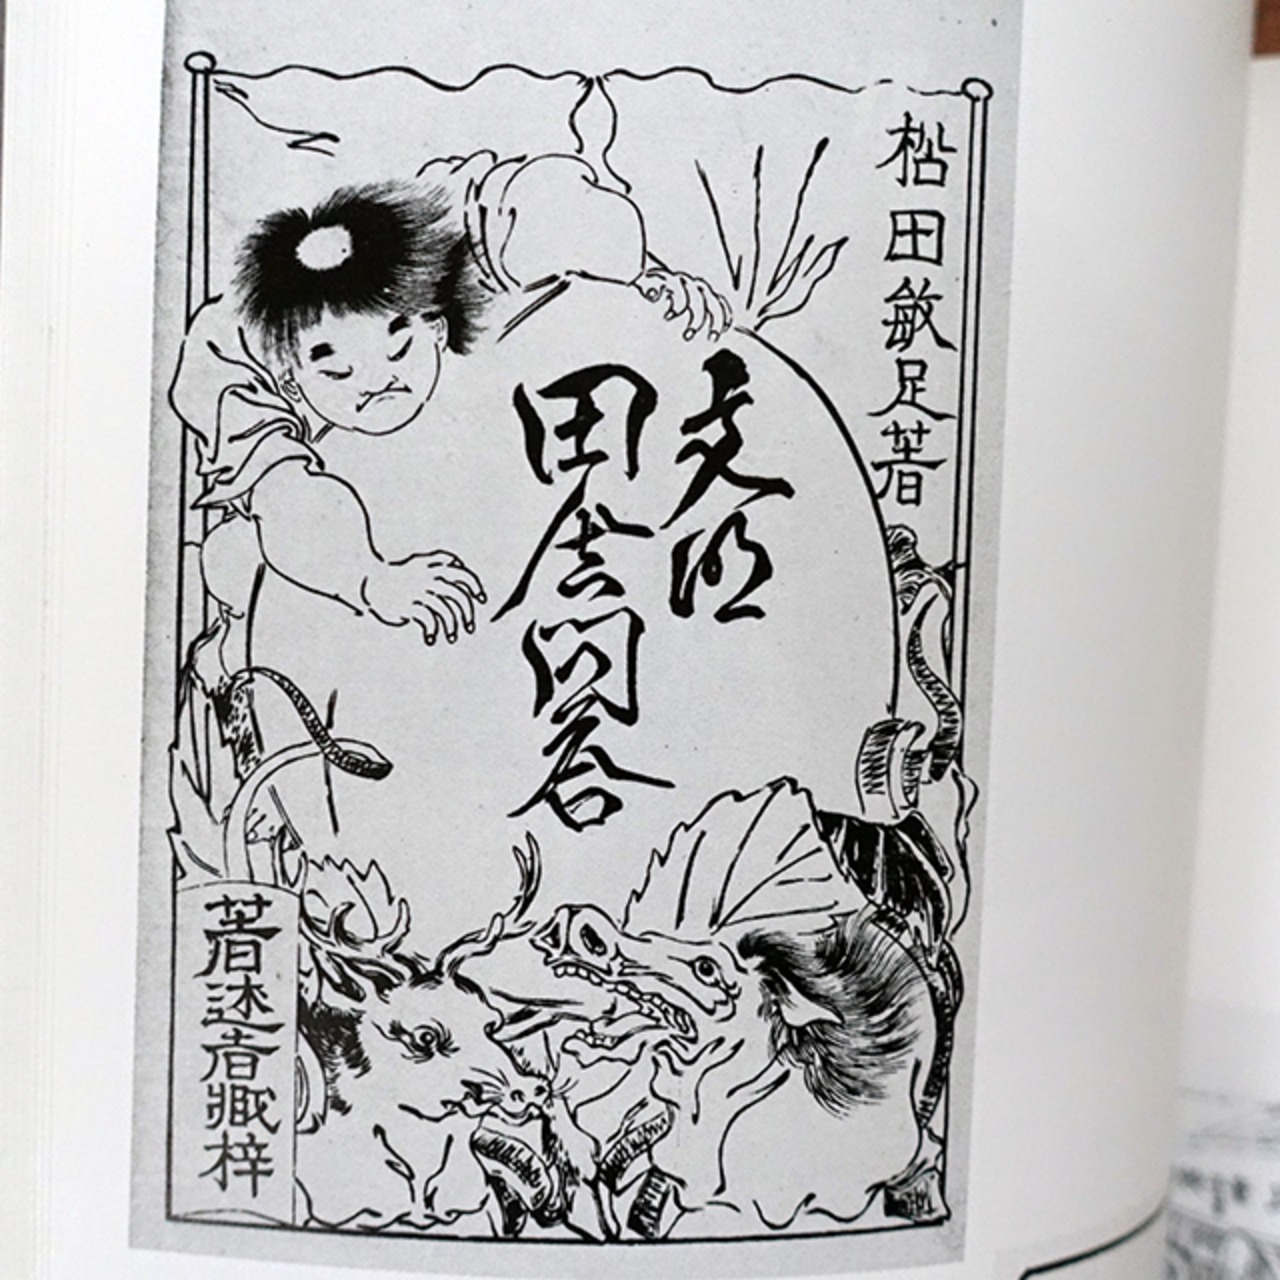 松田敏足著
文明
田舎問答
著述者蔵梓